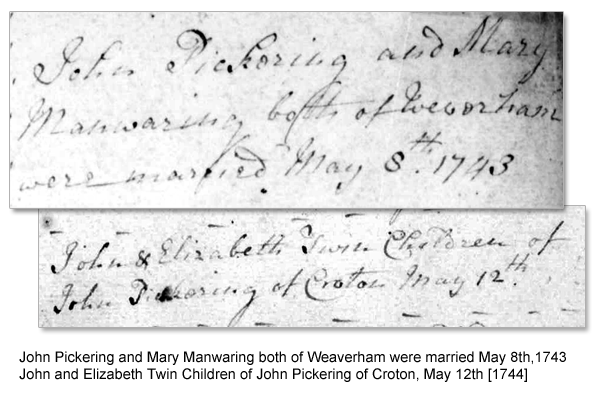 John Pickering and Mary
Manwaring both of Weverham
were married May 8th. 1743
John & Elizabeth Twin Children of
John Pickering of Croton May 12th.
John Pickering and Mary Manwaring both of Weaverham were married May 8th,1743
John and Elizabeth Twin Children of John Pickering of Croton, May 12th [1744]